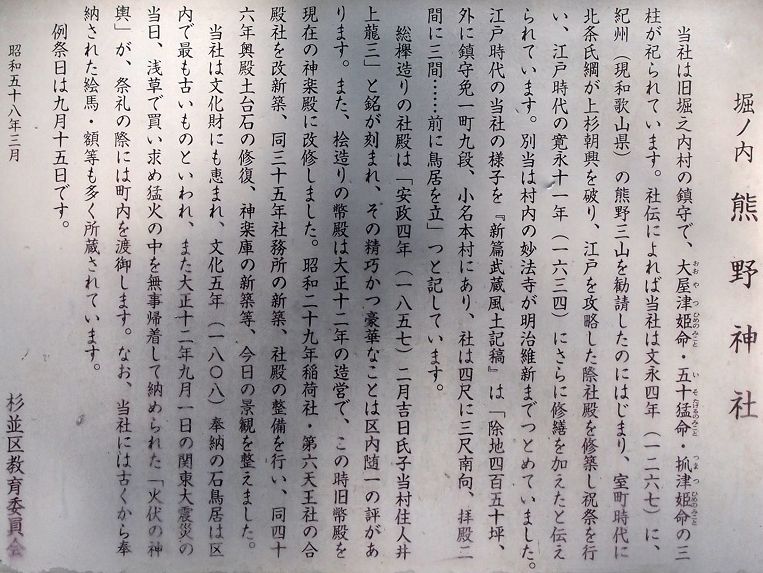 堀ノ内 熊野神社
当社は旧堀之内村の鎮守で、大屋津姫命・五十猛命・抓津姫命の三
おおやつひめのみこと いそたけるのみこと つまつひめのみこと
柱が祀られています。社伝によれば当社は文永四年（一二六七）に、
紀州（現和歌山県）の熊野三山を勧請したのにはじまり、室町時代に
北条氏綱が上杉朝興を破り、江戸を攻略した際社殿を修築し祝祭を行
い、江戸時代の寛永十一年（一六三四）にさらに修繕を加えたと伝え
られています。別当は村内の妙法寺が明治維新までつとめていました。
江戸時代の当社の様子を『新篇武蔵風土記稿』は「除地四百五十坪、
外に鎮守免一町九段、小名本村にあり、社は四尺に三尺南向、拝殿二
間に三間……前に鳥居を立」つと記しています。
総欅造りの社殿は「安政四年（一八五七）二月吉日氏子当村住人井
上龍三」と銘が刻まれ、その精巧かつ豪華なことは区内随一の評があ
ります。また、桧造りの幣殿は大正十二年の造営で、この時旧幣殿を
現在の神楽殿に改修しました。昭和二十九年稲荷社・第六天王社の合
殿社を改新築、同三十五年社務所の新築、社殿の整備を行い、同四十
六年奥殿土台石の修復、神楽庫の新築等、今日の景観を整えました。
当社は文化財にも恵まれ、文化五年（一八〇八）奉納の石鳥居は区
内で最も古いものといわれ、また大正十二年九月一日の関東大震災の
当日、浅草で買い求め猛火の中を無事帰着して納められた「火伏の神
輿」が、祭礼の際には町内を渡御します。なお、当社には古くから奉
納された絵馬・額等も多く所蔵されています。
例祭日は九月十五日です。
昭和五十八年三月
杉並区教育委員会